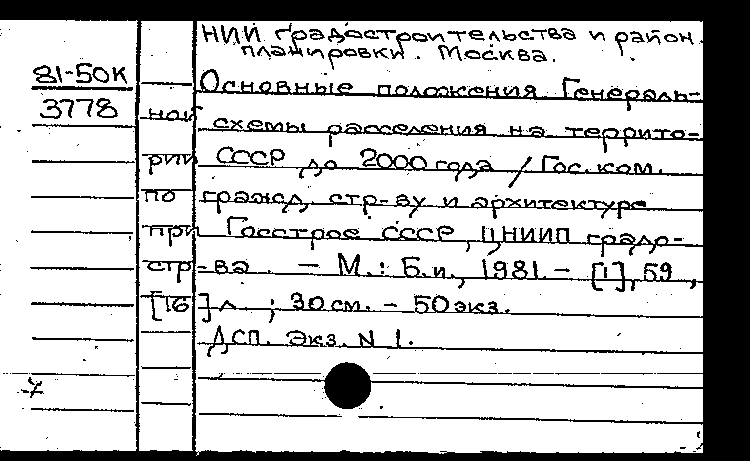 НИИ градостроительства и район.
планировки. Москва.
81-50К
3778
Основные положения Генераль-
ной схемы расселения на террито-
рии СССР до 2000 года / Гос. ком.
по гражд. стр-ву и архитектуре
при Госстрое СССР, ЦНИИП градо-
стр-ва. – М.: Б.и., 1981 – [1], 59,
[16] л ; 30 см. – 50 экз.
ДСП. Экз. N 1.